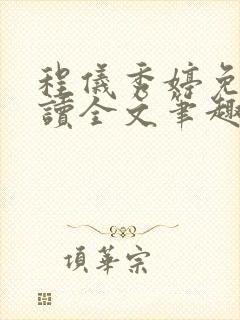 程儀秀婷免
讀全文筆趣
項華宗